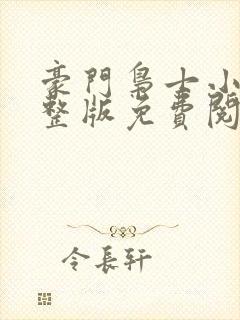 豪門梟士小
整版免費閱
令長軒